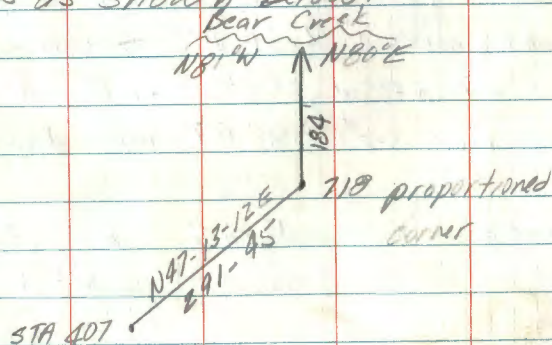 as shown below:
Bear Creek
N81°W N80°E
184'
718 proportioned
corner
N47-13-12E
291-45
STA 407